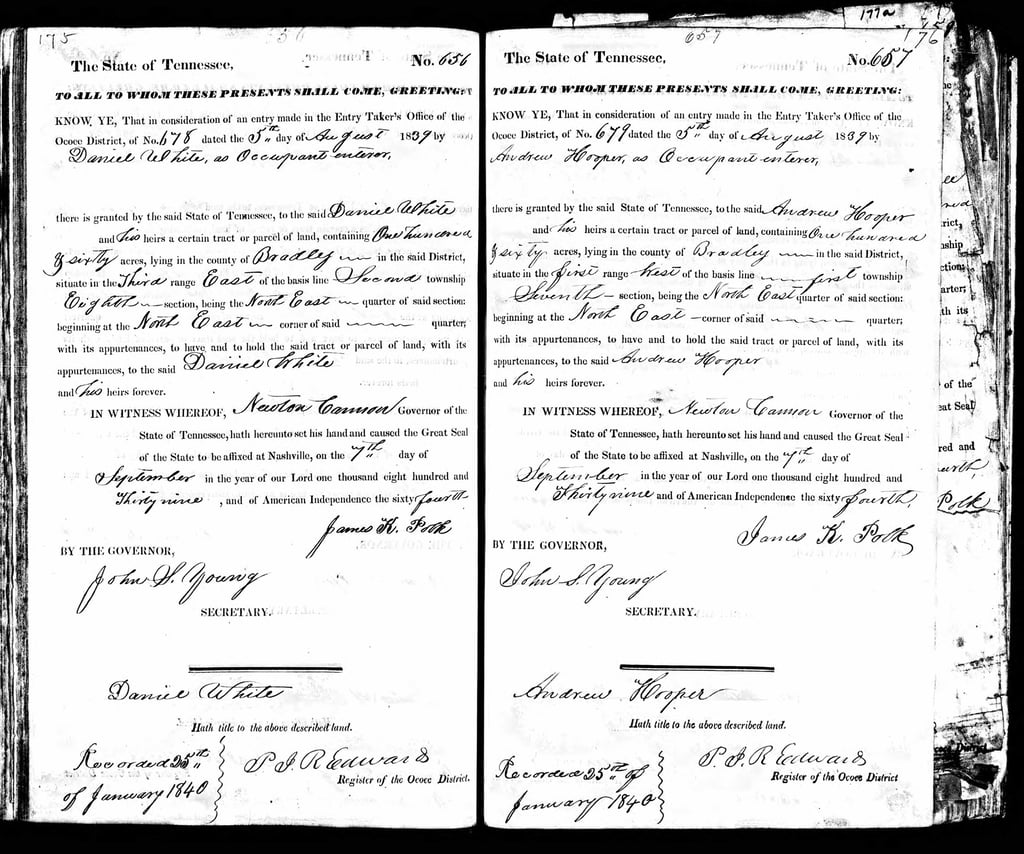 175
56
The State of Tennessee, No. 656
TO ALL TO WHOM THESE PRESENTS SHALL COME, GREETING:
KNOW YE, That in consideration of an entry made in the Entry Taker's Office of the
Ocoee District, of No. 678 dated the 5th day of August 1839 by
Daniel White, as Occupant enterer,
there is granted by the said State of Tennessee, to the said Daniel White
and his heirs a certain tract or parcel of land, containing One hundred
& sixty acres, lying in the county of Bradley in the said District,
situate in the Third range East of the basis line Second township
Eighth section, being the North East quarter of said section:
beginning at the North East corner of said quarter;
with its appurtenances, to have and to hold the said tract or parcel of land, with its
appurtenances, to the said Daniel White
and his heirs forever.
IN WITNESS WHEREOF, Newton Cannon Governor of the
State of Tennessee, hath hereunto set his hand and caused the Great Seal
of the State to be affixed at Nashville, on the 7th day of
September in the year of our Lord one thousand eight hundred and
Thirty nine, and of American Independence the sixty fourth
James K. Polk
BY THE GOVERNOR,
John S. Young
SECRETARY.
Daniel White
Hath title to the above described land.
Recorded 25th
of January 1840
P. J. R Edwards
Register of the Ococe District.
177a
176
657
The State of Tennessee, No. 657
TO ALL TO WHOM THESE PRESENTS SHALL COME, GREETING:
KNOW YE, That in consideration of an entry made in the Entry Taker's Office of the
Ocoee District, of No. 679 dated the 5th day of August 1839 by
Andrew Hooper, as Occupant enterer,
there is granted by the said State of Tennessee, to the said Andrew Hooper
and his heirs a certain tract or parcel of land, containing One hundred
& sixty acres, lying in the county of Bradley in the said District,
situate in the first range West of the basis line first township
Seventh section, being the North East quarter of said section:
beginning at the North East corner of said quarter;
with its appurtenances, to have and to hold the said tract or parcel of land, with its
appurtenances, to the said Andrew Hooper
and his heirs forever.
IN WITNESS WHEREOF, Newton Cannon Governor of the
State of Tennessee, hath hereunto set his hand and caused the Great Seal
of the State to be affixed at Nashville, on the 7th day of
September in the year of our Lord one thousand eight hundred and
Thirty nine and of American Independence the sixty fourth,
James K. Polk
BY THE GOVERNOR,
John S. Young
SECRETARY.
Andrew Hooper
Hath title to the above described land.
Recorded 25th of
January 1840
P. J. R Edwards
Register of the Ococe District
of the
eat Seal
red and
Polk